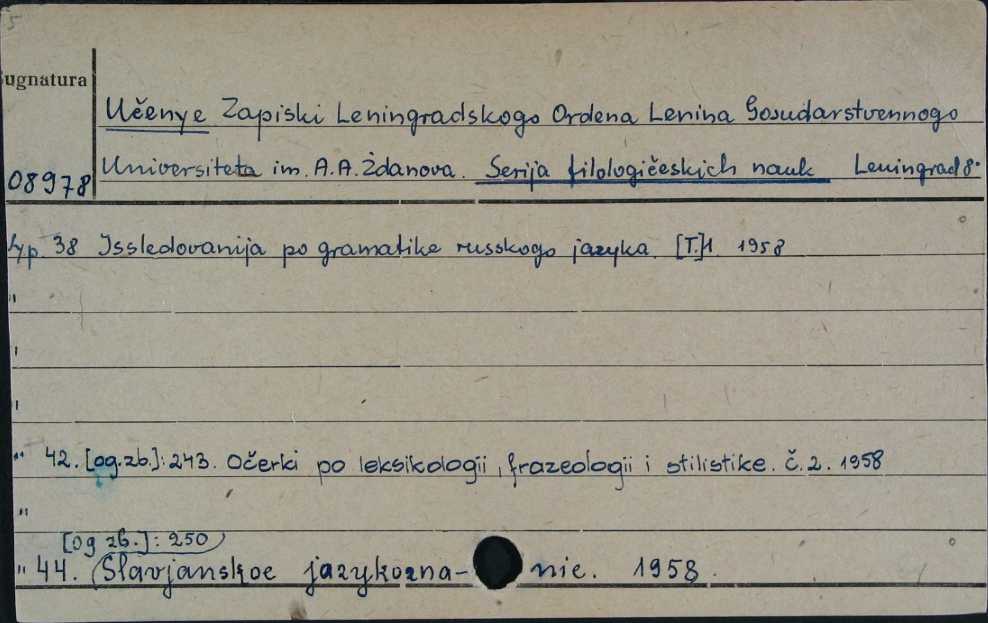 5
ugnatura
Učenye Zapiski Leningradskogo Ordena Lenina Gosudarstvennogo
08978 Universiteta im. A.A. Ždanova. Serija filologičeskich nauk Leningrad 8°
Vyp. 38 Issledovanija po gramatike russkogo jazyka. [T.]1. 1958
"
"
"
" 42. [og.zb.]: 243. Očerki po leksikologii, frazeologii i stilistike. č. 2. 1958
"
[og zb.]: 250
" 44. Slavjanskoe jazykozna- nie. 1958.